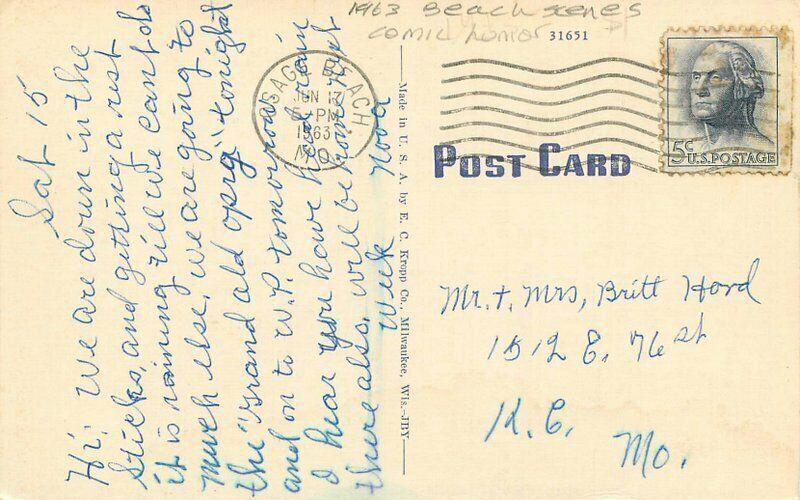 1963 Beach scenes
comic humor
31651
OSAGE BEACH
JUN 17
PM
1963
MO.
5c U.S. POSTAGE
POST CARD
Made in U. S. A. by E. C. Kropp Co., Milwaukee, Wis.-JBY
Sat 15
Hi: We are down in the
sticks, and getting a rest
it is raining till we cant do
much else. We are going to
the "Grand old opry" tonight
and on to W.P. tomorrow
I hear you have had rain
there also. will be home next
Week Nova
Mr. + Mrs, Britt Hord
1512 E. 76 st
K.C.
Mo.